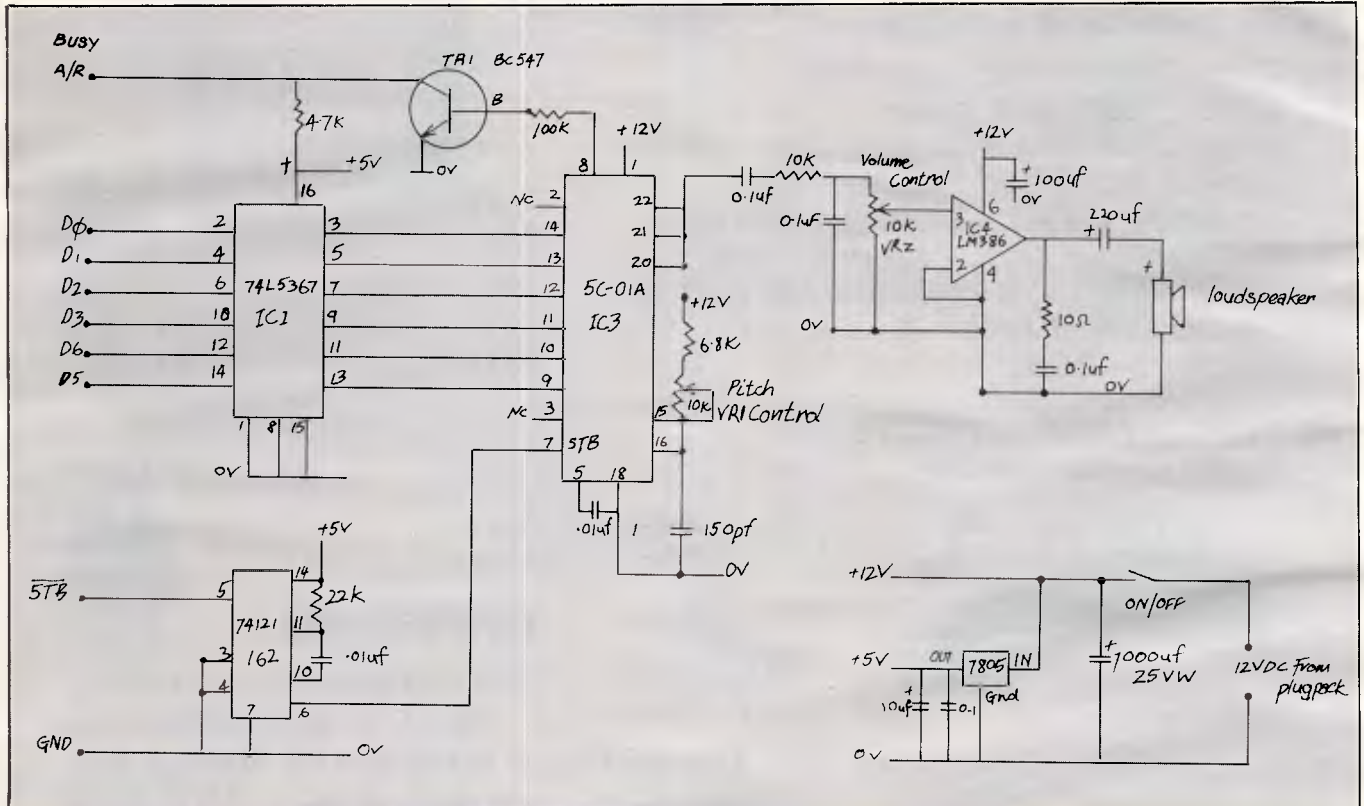 BUSY
A/R
TR1 BC547
B
4.7K
100K
+12V
+5V
0V
16
8
1
DΦ
D1
D2
D3
D6
D5
2
4
6
10
12
14
74LS367
IC1
3
5
7
9
11
13
1
8
15
0V
NC 2
14
13
12
11
10
9
NC 3
7 STB
5
18
SC-01A
IC3
22
21
20
15
16
.01uf
1
150pf
0V
+12V
6.8K
10K
Pitch
VR1 Control
0.1uf
10K
Volume
Control
0.1uF
10K
VR2
0V
+12V
+
100uf
0V
3
6
IC4
LM386
2
4
220uf
+
+
loudspeaker
10Ω
0.1uf
0V
+5V
14
22K
STB
5
74121
11
162
.01uf
3
10
4
6
7
GND
0V
+12V
ON/OFF
+5V
OUT
7805
IN
Gnd
+
10uf
0.1
+
1000uf
25VW
12VDC From
plugpack
0V